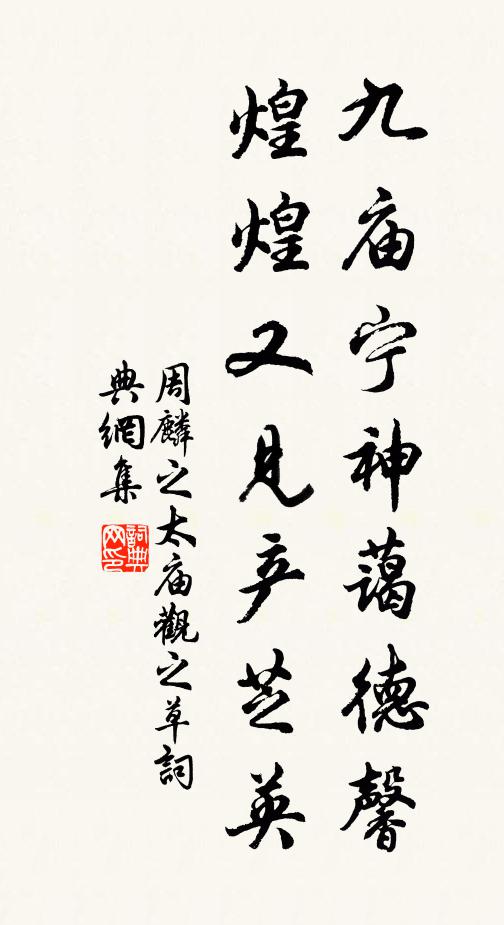 九庙宁神蔼德馨
煌煌又见产芝英
周麟之太庙觀之草詞
典網集
詞典网印